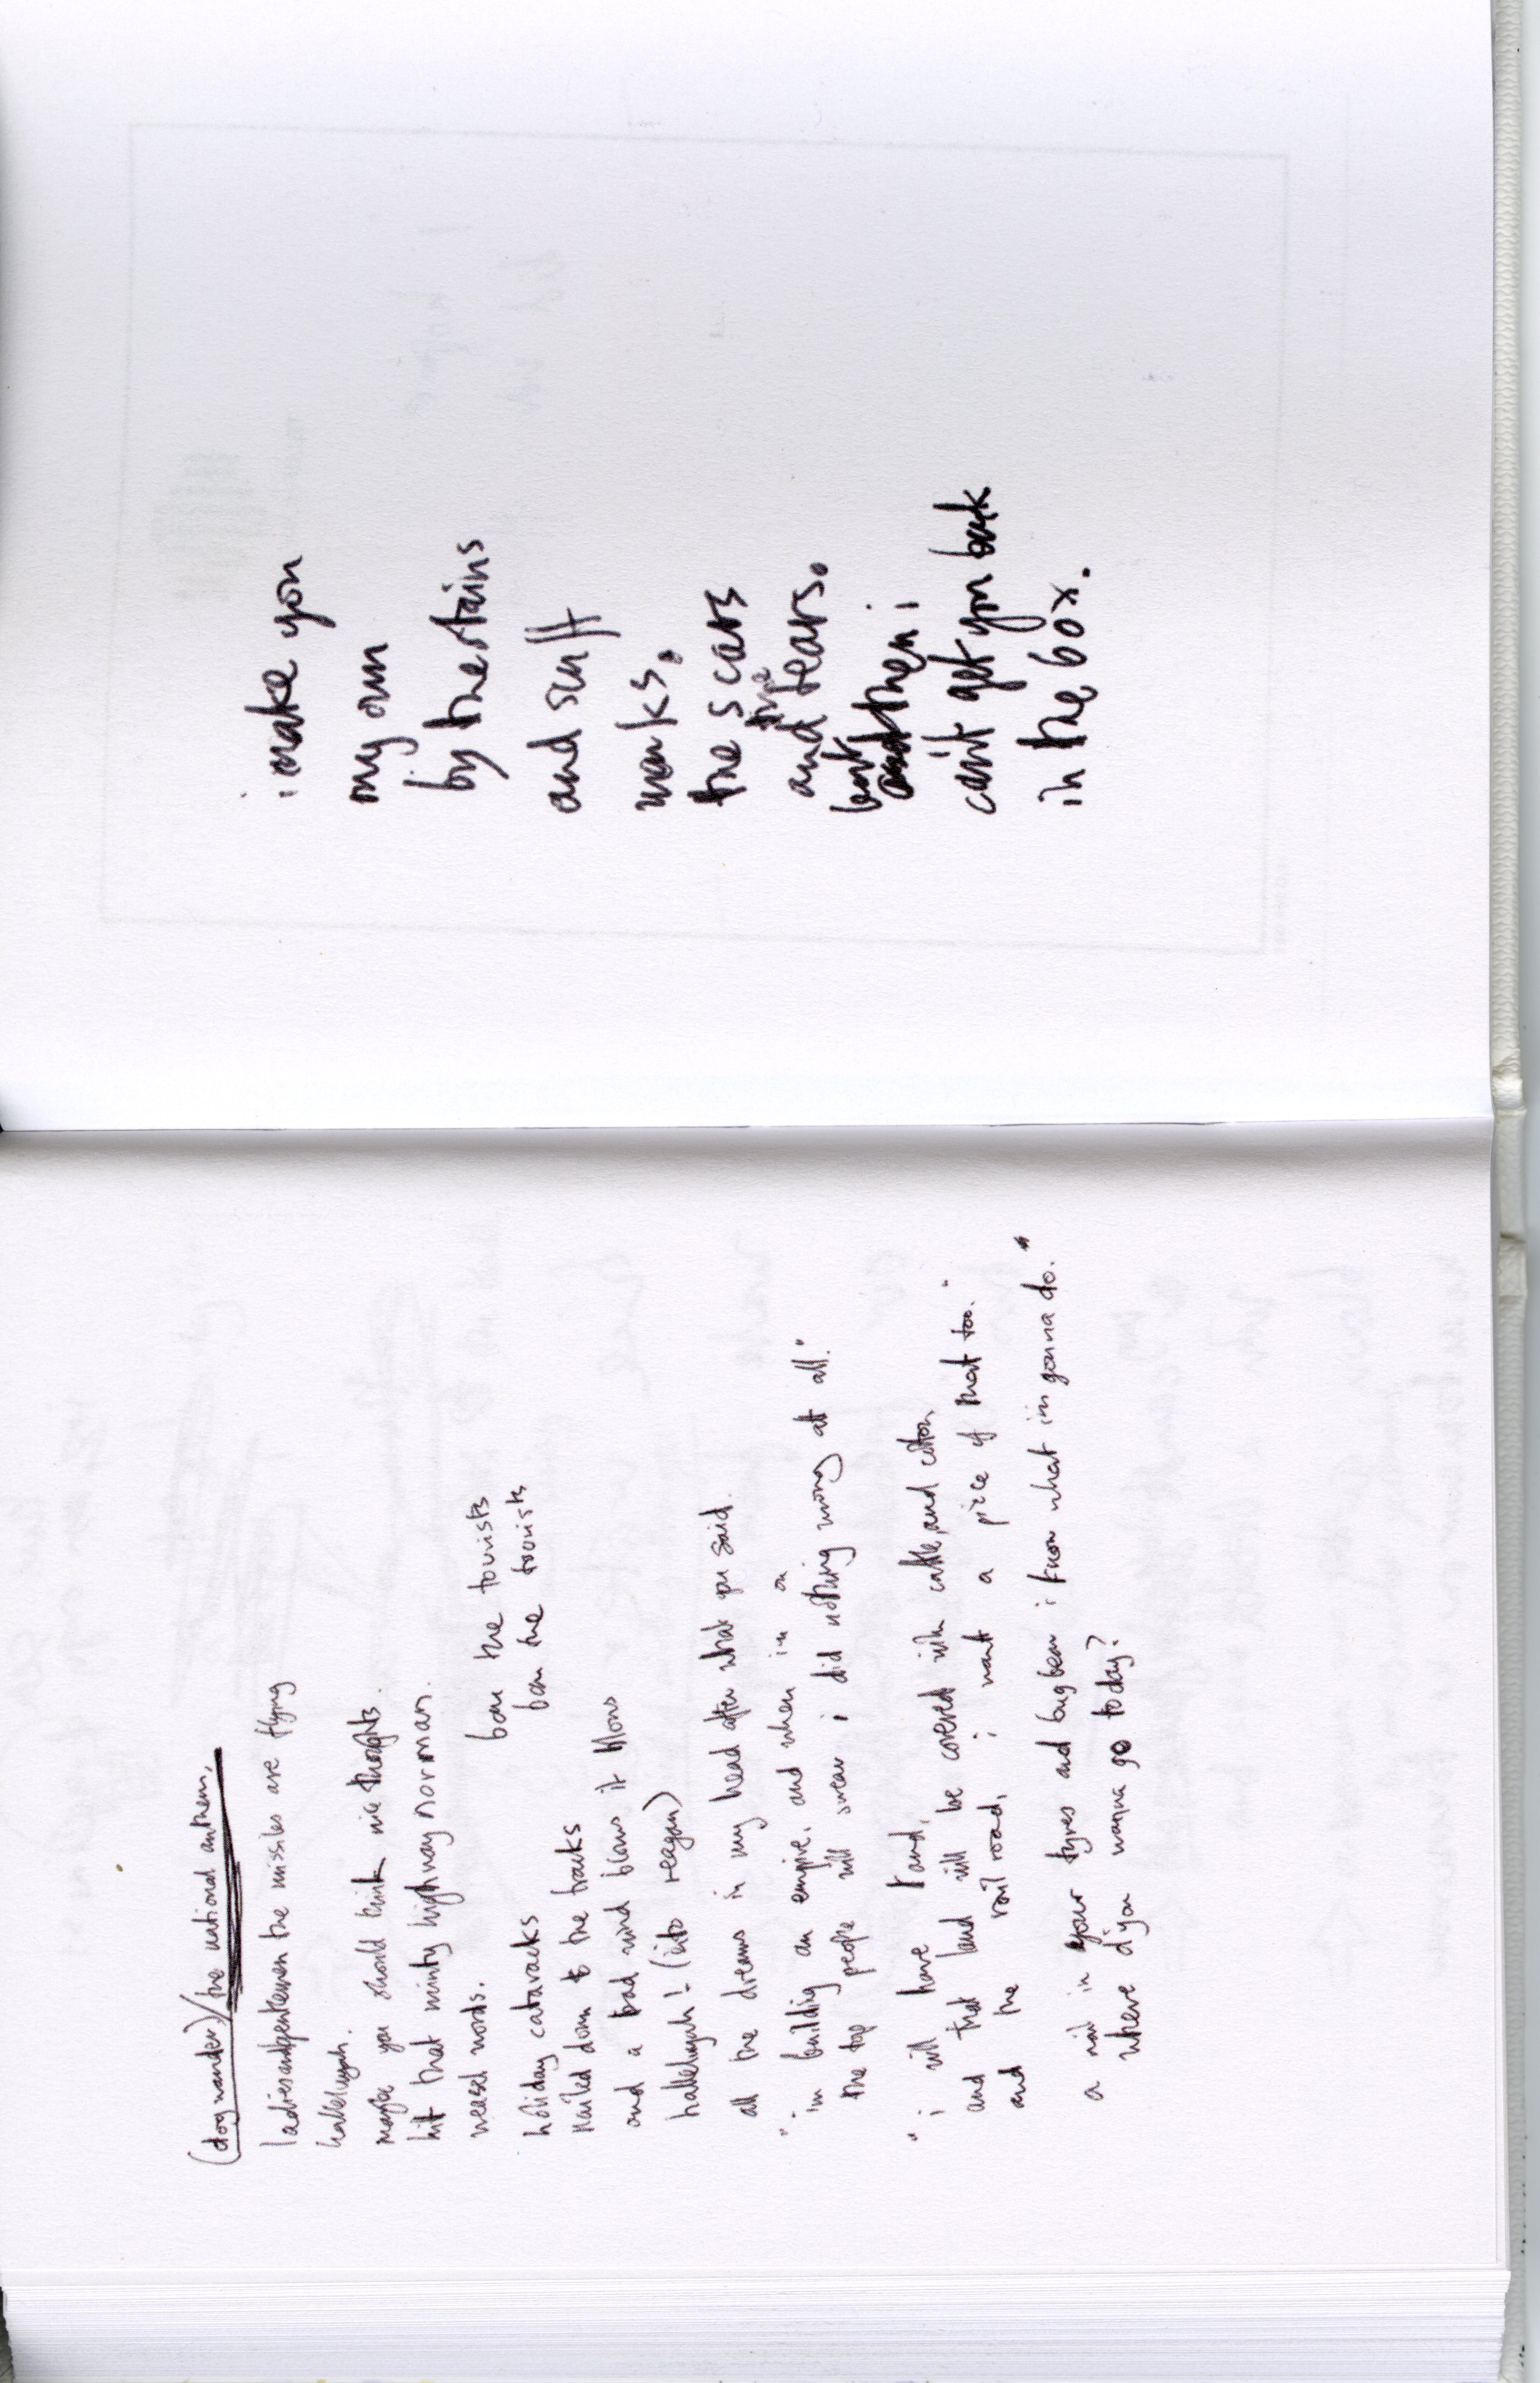 (dog wander)/the national anthem,
ladiesandgentlemen the missiles are flying
hallelujah.
maybe you should think nice thoughts.
hit that minty highway norman.
weasel words.
bomb the tourists
bomb the tourists
holiday cataracks
nailed down to the tracks
and a bad wind blows it blows
hallelujah! (into reagan)
all the dreams in my head after what you said.
"im building an empire. and when im on
the top people will swear i did nothing wrong at all."
"i will have land,
and that land will be covered with cattle, and cotton
and the rail road, i want a piece of that too."
a nail in your tyres and bugbear i know what im gonna do."
where d'you wanna go today?
i make you
my own
by the stains
and scuff
marks.
the scars
and the tears.
but then i
can't get you back
in the box.